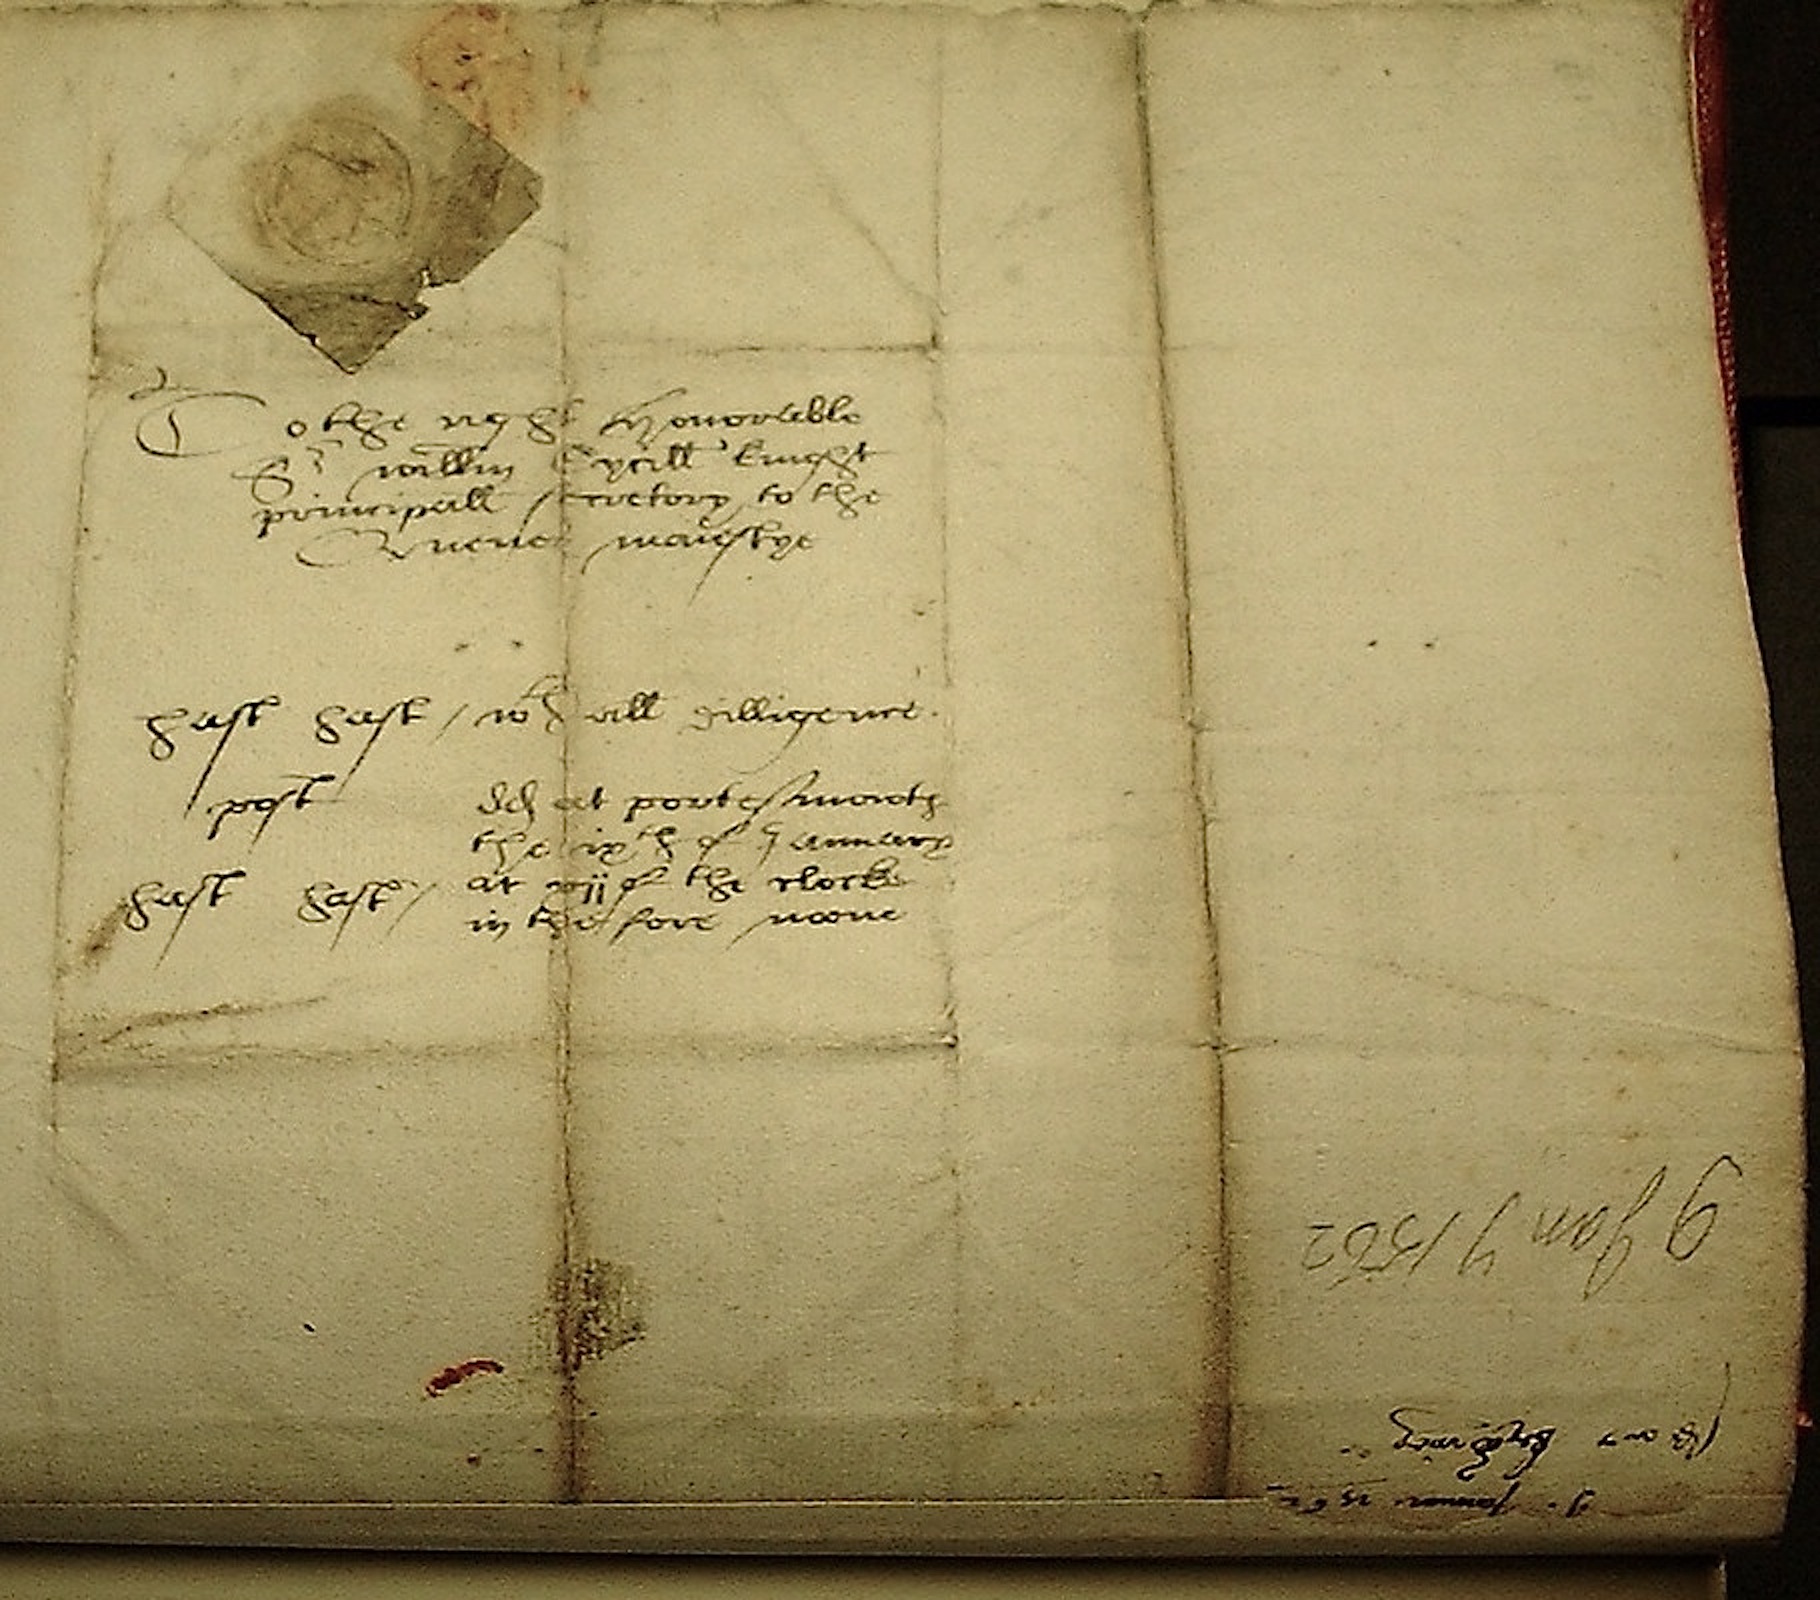 To the right honorable
Sr willm Cycill knight
principall secretory to the
Quenes maiestye
hast hast / wth all dilligence.
post
dd at portesmowth
the ixth of January
hast hast /
at xij of the clocke
in the fore noone
9 Jany 1562
9. Januar. 1562